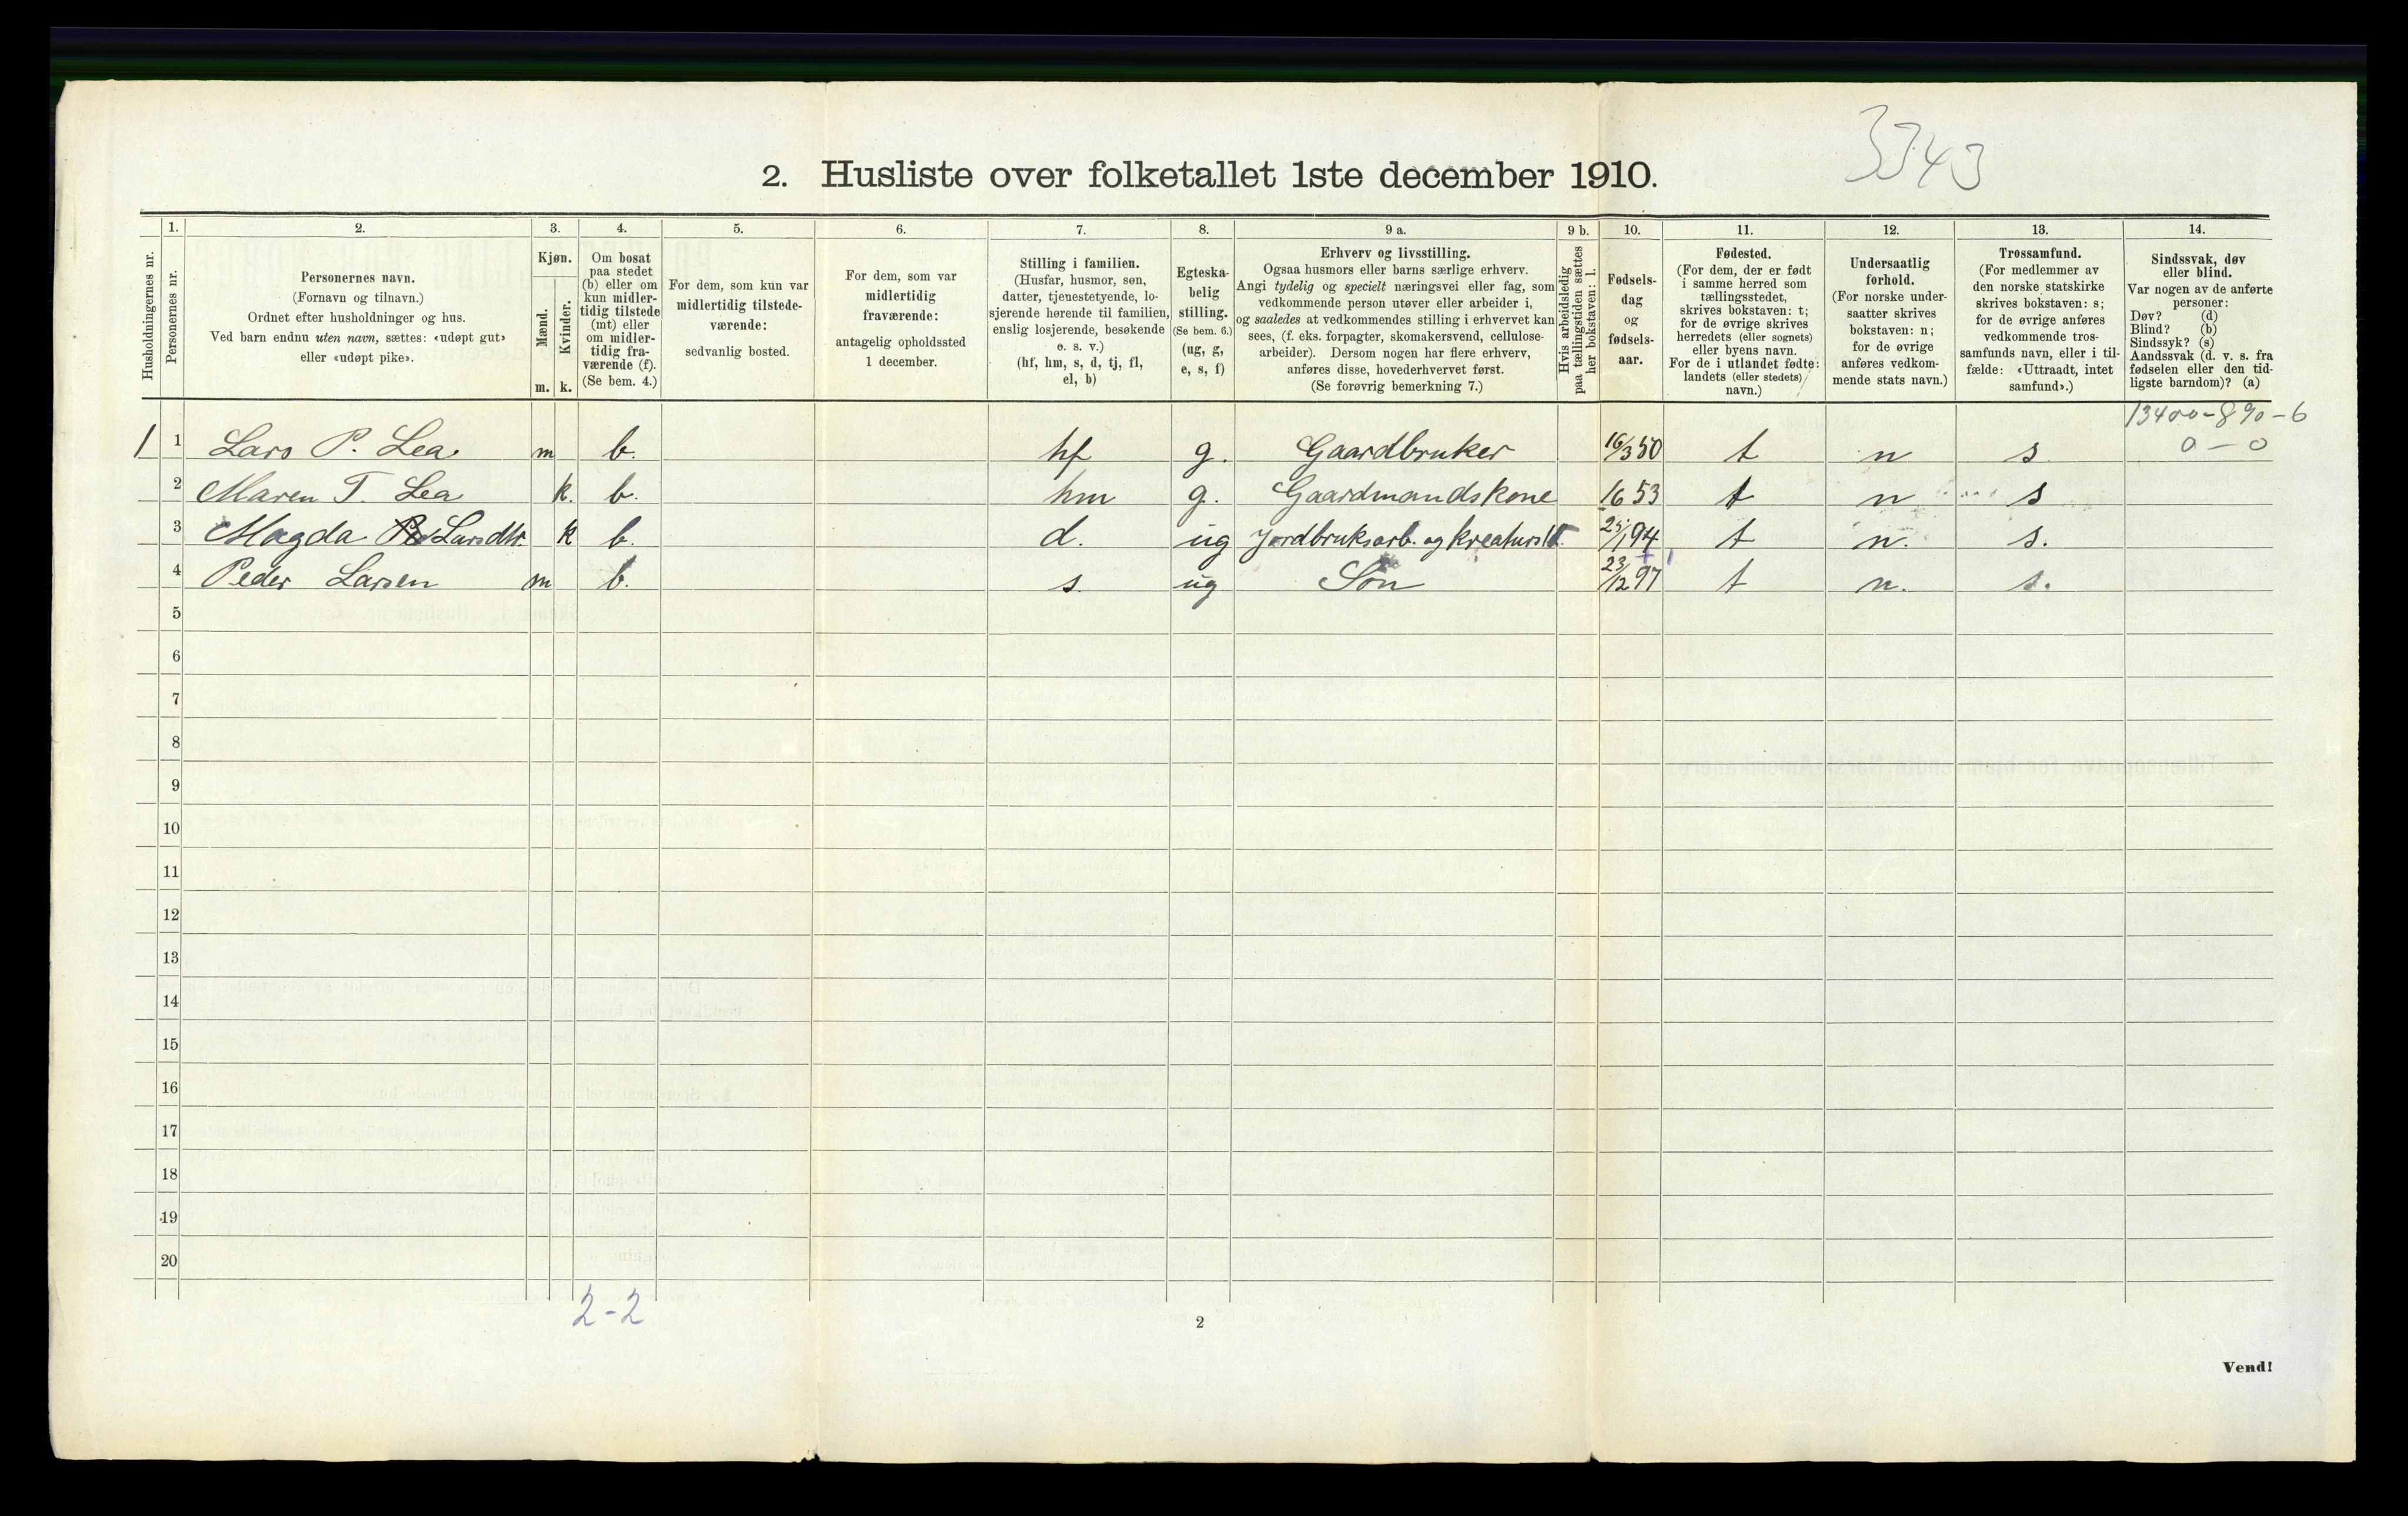 3343
2. Husliste over folketallet 1ste december 1910.
Husholdningernes nr.
1.
Personernes nr.
2.
Personernes navn.
(Fornavn og tilnavn.)
Ordnet efter husholdninger og hus.
Ved barn endnu uten navn, sættes: «udøpt gut»
eller «udøpt pike».
3.
Kjøn.
Mænd.
Kvinder.
m. k.
4.
Om bosat
paa stedet
(b) eller om
kun midler-
tidig tilstede
(mt) eller
om midler-
tidig fra-
værende (f).
(Se bem. 4.)
5.
For dem, som kun var
midlertidig tilstede-
værende:
sedvanlig bosted.
6.
For dem, som var
midlertidig
fraværende:
antagelig opholdssted
1 december.
7.
Stilling i familien.
(Husfar, husmor, søn,
datter, tjenestetyende, lo-
sjerende hørende til familien,
enslig losjerende, besøkende
o. s. v.)
(hf, hm, s, d, tj, fl,
el, b)
8.
Egteska-
belig
stilling.
(Se bem. 6.)
(ug, g,
e, s, f)
9 a.
Erhverv og livsstilling.
Ogsaa husmors eller barns særlige erhverv.
Angi tydelig og specielt næringsvei eller fag, som
vedkommende person utøver eller arbeider i,
og saaledes at vedkommendes stilling i erhvervet kan
sees, (f. eks. forpagter, skomakersvend, cellulose-
arbeider). Dersom nogen har flere erhverv,
anføres disse, hovederhvervet først.
(Se forøvrig bemerkning 7.)
9 b.
Hvis arbeidsledig
paa tællingstiden sættes
her bokstaven: l.
10.
Fødsels-
dag
og
fødsels-
aar.
11.
Fødested.
(For dem, der er født
i samme herred som
tællingsstedet,
skrives bokstaven: t;
for de øvrige skrives
herredets (eller sognets)
eller byens navn.
For de i utlandet fødte:
landets (eller stedets)
navn.)
12.
Undersaatlig
forhold.
(For norske under-
saatter skrives
bokstaven: n;
for de øvrige
anføres vedkom-
mende stats navn.)
13.
Trossamfund.
(For medlemmer av
den norske statskirke
skrives bokstaven: s;
for de øvrige anføres
vedkommende tros-
samfunds navn, eller i til-
fælde: «Uttraadt, intet
samfund».)
14.
Sindssvak, døv
eller blind.
Var nogen av de anførte
personer:
Døv? (d)
Blind? (b)
Sindssyk? (s)
Aandssvak (d. v. s. fra
fødselen eller den tid-
ligste barndom)? (a)
13400-890-6
0-0
1 1 Lars P. Lea m b. hf g. Gaardbruker 16/3 50 t n s
2 Maren T. Lea k. b. hm g. Gaardmandskone 16 53 t n s
3 Magda Larsdtr. k b. d. ug Jordbruksarb. og kreaturst. /1 94 t n. s.
4 Peder Larsen m b. s. ug Søn 23/12 97 t n. s.
5
6
7
8
9
10
11
12
13
14
15
16
17
18
19
20
2-2
2
Vend!